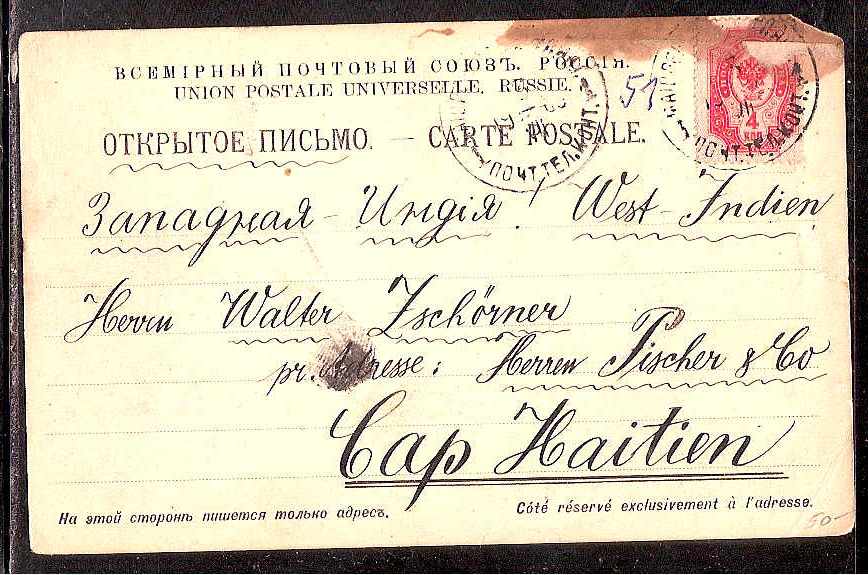 ВСЕМІРНЫЙ ПОЧТОВЫЙ СОЮЗЪ. РОССІЯ.
UNION POSTALE UNIVERSELLE. RUSSIE.
51
ОТКРЫТОЕ ПИСЬМО. — CARTE POSTALE.
ПОЧТ.ТЕЛ.КОНТ.
4 КОП
ПОЧТ.ТЕЛ.КОНТ.
Западная - Индія! West-Indien
Herrn Walter Zschörner
pr. Adresse: Herren Fischer & Co
Cap Haitien
На этой сторонѣ пишется только адресъ.
Côté réservé exclusivement à l'adresse.
50-